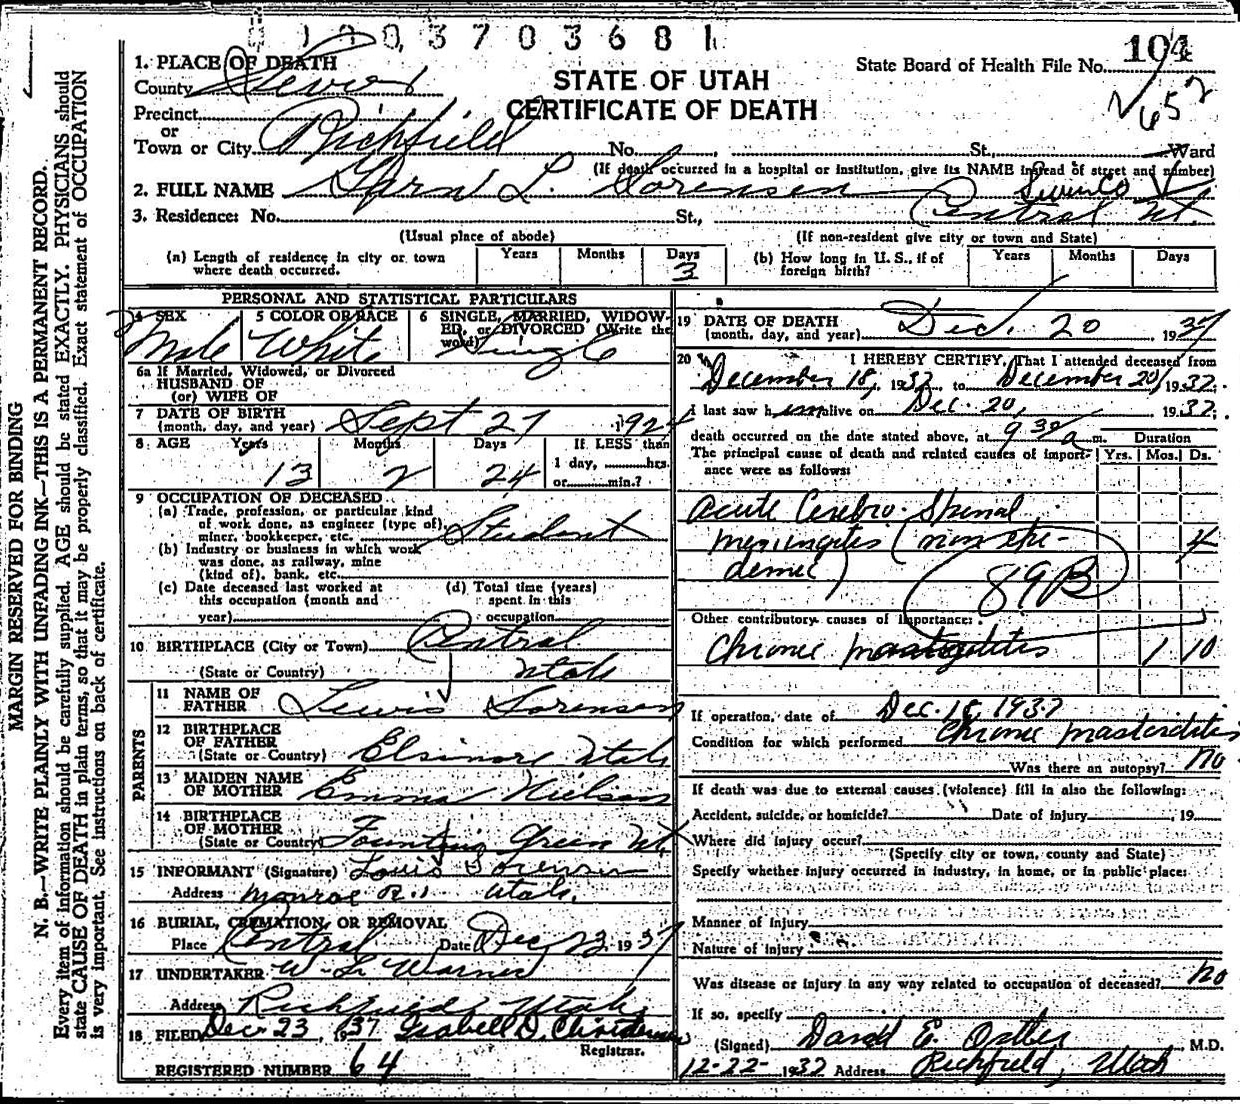 1003703681
104
2/652
State Board of Health File No.
STATE OF UTAH
CERTIFICATE OF DEATH
1. PLACE OF DEATH
County Sevier
Precinct
or
Town or City Richfield No. St., Ward
(If death occurred in a hospital or institution, give its NAME instead of street and number)
2. FULL NAME Garn L. Sorensen
Sevier Co
3. Residence: No. St., Central Ut.
(Usual place of abode) (If non-resident give city or town and State)
(a) Length of residence in city or town where death occurred. Years Months Days 3
(b) How long in U. S., if of foreign birth? Years Months Days
PERSONAL AND STATISTICAL PARTICULARS
4 SEX Male
5 COLOR OR RACE White
6 SINGLE, MARRIED, WIDOWED, or DIVORCED (Write the word) Single
6a If Married, Widowed, or Divorced
HUSBAND OF
(or) WIFE OF
7 DATE OF BIRTH
(month, day, and year) Sept 27 1924
8 AGE Years 13 Months 2 Days 24 If LESS than
1 day, hrs.
or min.?
9 OCCUPATION OF DECEASED
(a) Trade, profession, or particular kind
of work done, as engineer (type of),
miner, bookkeeper, etc. Student
(b) Industry or business in which work
was done, as railway, mine
(kind of), bank, etc.
(c) Date deceased last worked at
this occupation (month and
year)
(d) Total time (years)
spent in this
occupation
10 BIRTHPLACE (City or Town) Central
(State or Country) Utah
PARENTS
11 NAME OF
FATHER Lewis Sorensen
12 BIRTHPLACE
OF FATHER
(State or Country) Elsinore Utah
13 MAIDEN NAME
OF MOTHER Emma Nielson
14 BIRTHPLACE
OF MOTHER
(State or Country) Fountain Green Ut.
15 INFORMANT (Signature) Louis Sorensen
Address Monroe R.1 Utah.
16 BURIAL, CREMATION, OR REMOVAL
Place Central Date Dec 23, 1937
17 UNDERTAKER W. L. Warner
Address Richfield Utah
18 FILED Dec 23, 1937 Isabell D.
Registrar.
REGISTERED NUMBER 64
19 DATE OF DEATH
(month, day, and year) Dec. 20 1937
20 I HEREBY CERTIFY, That I attended deceased from
December 18, 1937 to December 20, 1937.
I last saw him alive on Dec. 20, 1937.
death occurred on the date stated above, at 9 30 a m.
The principal cause of death and related causes of importance were as follows:
Duration
Yrs. Mos. Ds.
Acute Cerebro-Spinal
meningitis (non epi- 4
demic)
89B
Other contributory causes of importance:
Chronic mastoiditis 1 10
If operation, date of Dec. 18 1937
Condition for which performed Chronic mastoiditis
Was there an autopsy? no
If death was due to external causes (violence) fill in also the following:
Accident, suicide, or homicide? Date of injury , 19
Where did injury occur?
(Specify city or town, county and State)
Specify whether injury occurred in industry, in home, or in public place:
Manner of injury
Nature of injury
Was disease or injury in any way related to occupation of deceased? no
If so, specify
(Signed) David E. Ostler M.D.
12-22-1937 Address Richfield, Utah
MARGIN RESERVED FOR BINDING
N. B.—WRITE PLAINLY WITH UNFADING INK—THIS IS A PERMANENT RECORD.
Every item of information should be carefully supplied. AGE should be stated EXACTLY. PHYSICIANS should
state CAUSE OF DEATH in plain terms, so that it may be properly classified. Exact statement of OCCUPATION
is very important. See instructions on back of certificate.